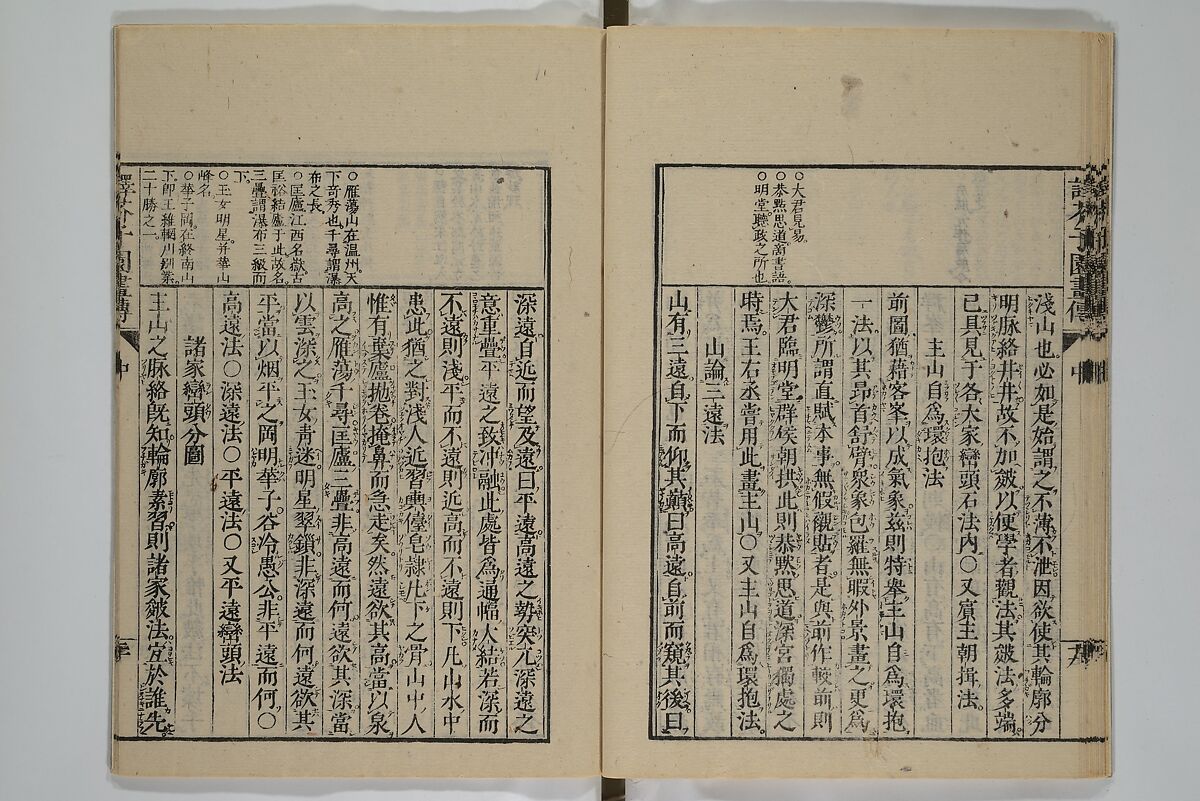 ○大君見易
○恭默思道商書語
○明堂聽政之所也
淺山也必如是始謂之不薄不泄因欲使其輪廓分
明脉絡井井故不加皴以便學者觀法其皴法多端
已具見于各大家巒頭石法內○又賓主朝揖法
主山自爲環抱法
前圖猶藉客峯以成氣象茲則特舉主山自爲環抱
一法以其昂首舒臂衆象包羅無暇外景畫之更爲
深鬱所謂直賦本事無假襯貼者是與前作較前則
大君臨明堂群侯朝拱此則恭默思道深宮獨處之
時焉王右丞嘗用此畫主山○又主山自爲環抱法
山論三遠法
山有三遠自下而仰其巔曰高遠自前而窺其後曰
○雁蕩山在温州天
下奇秀也千尋謂瀑
布之長
○匡廬江西名嶽古
匡裕結廬于此故名
三疊謂瀑布三級而
下
○玉女明星并華山
峰名
○華子岡在終南山
下即王維輞川別業
二十勝之一
深遠自近而望及遠曰平遠高遠之勢突兀深遠之
意重疊平遠之致冲融此處皆爲通幅大結若深而
不遠則淺平而不遠則近高而不遠則下凡山水中
患此猶之對淺人近習輿儓皂隸凡下之骨山中人
惟有棄廬抛卷掩鼻而急走矣然遠欲其高當以泉
高之雁蕩千尋匡廬三疊非高遠而何遠欲其深當
以雲深之玉女靑迷明星翠鎖非深遠而何遠欲其
平當以烟平之岡明華子谷冷愚公非平遠而何○
高遠法○深遠法○平遠法○又平遠巒頭法
諸家巒頭分圖
主山之脉絡既知輪廓素習則諸家皴法宜於誰先
譯芥子園畫傳
中